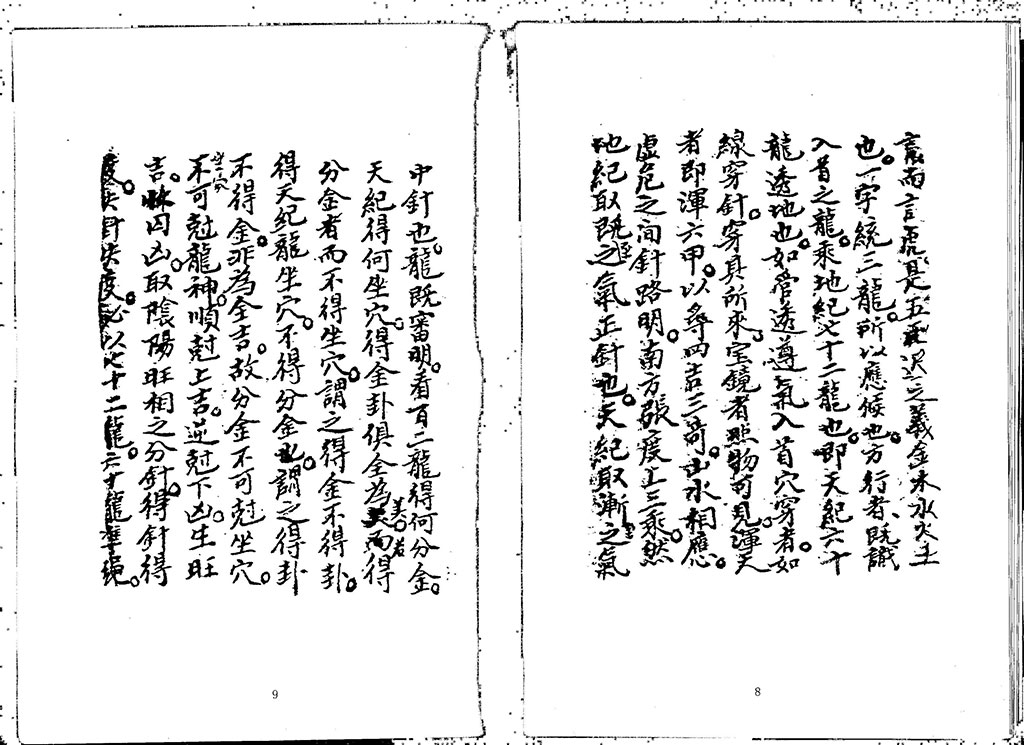 言而言虎。是五之義金木水火土
也。一字統三龍。所以應候也。五行者、既識
入首之龍。乘地紀七十二龍也。即天紀六十
龍透地也。如管透遵氣入首穴穿者。如
線穿針。穿具所來。宝鏡者照物可見。渾天
者即渾六甲。以尋四吉三奇。山水相應。
虛危之間針路明。南方張度上三乘。然
地紀取既之氣正針也。天紀取漸之氣
8
中針也。龍既審明。看百二龍得何分金。
天紀得何坐穴。得金卦俱全為美。若得
分金者而不得坐穴。謂之得金不得卦。
得天紀龍坐穴。不得分金。謂之得卦
不得金。非為全吉。故分金不可尅坐穴。
坐穴
不可尅龍神。順尅上吉。逆尅下凶。生旺
吉。囚凶。取陰陽旺相之分針。得針得
度。失針失度。必以七十二龍。六十龍準繩。
9